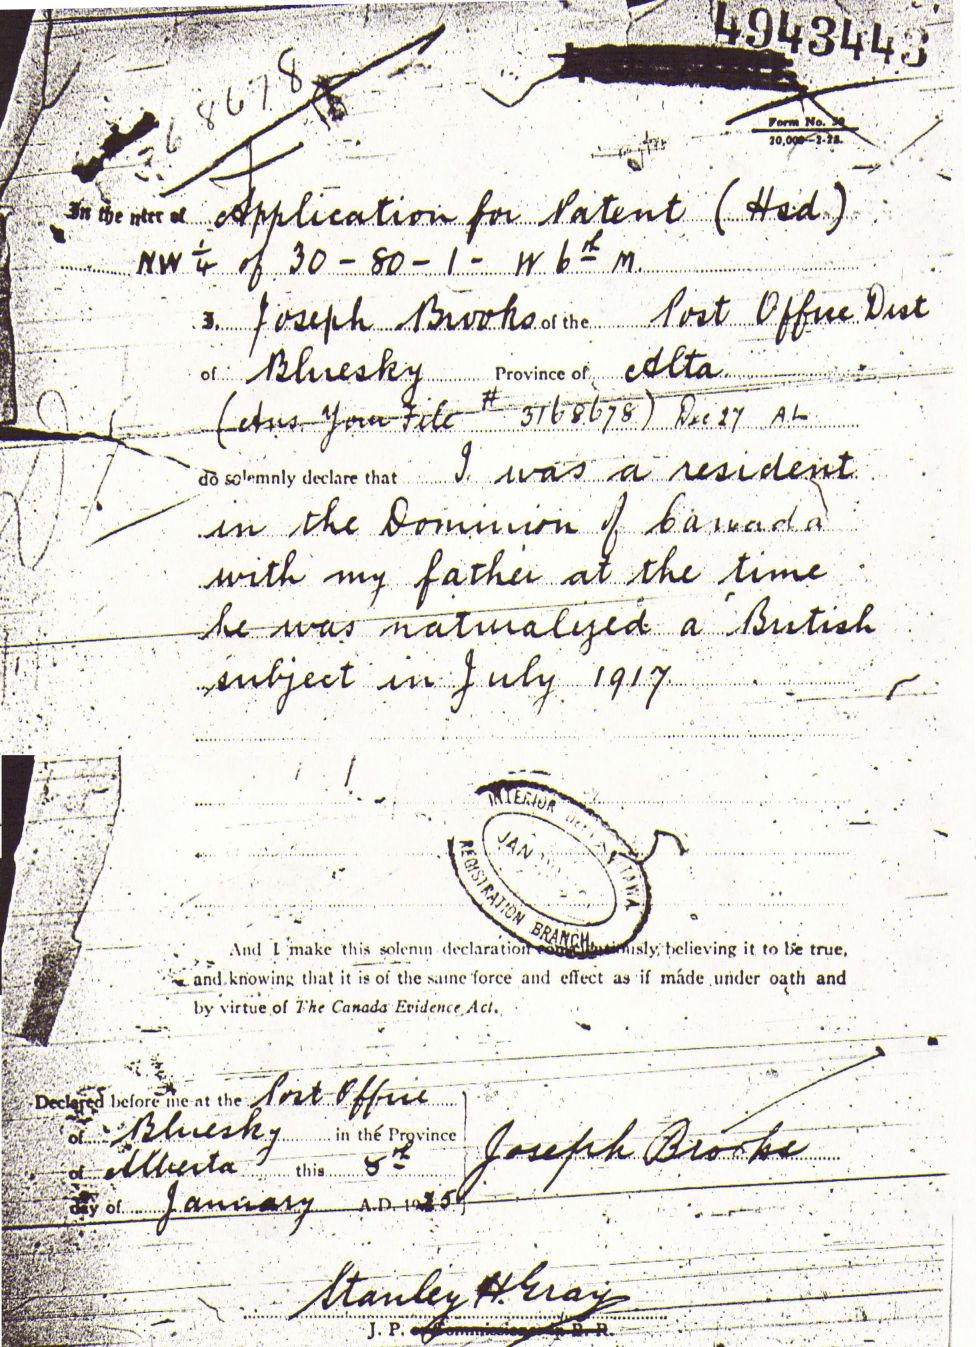 4943443
68678
Form No. 
20,000-2-23.
In the tter of Application for Patent (Hsd.)
NW 1/4 of 30 - 80 - 1 - W 6th M.
I, Joseph Brooks of the Post Office Dist
of Bluesky Province of Alta
(Ans. Your File # 3168678) Dec 27 AL
do solemnly declare that I was a resident
in the Dominion of Canada
with my father at the time
he was naturalized a British
subject in July 1917
INTERIOR OTTAWA
JAN
REGISTRATION BRANCH
And I make this solemn declaration conscientiously, believing it to be true,
and knowing that it is of the same force and effect as if made under oath and
by virtue of The Canada Evidence Act.
Declared before me at the Post Office
of Bluesky in the Province
of Alberta this 5th
day of January A.D. 1925
Joseph Brooks
Stanley H. Gray
J. P. or Commissioner in B. R.